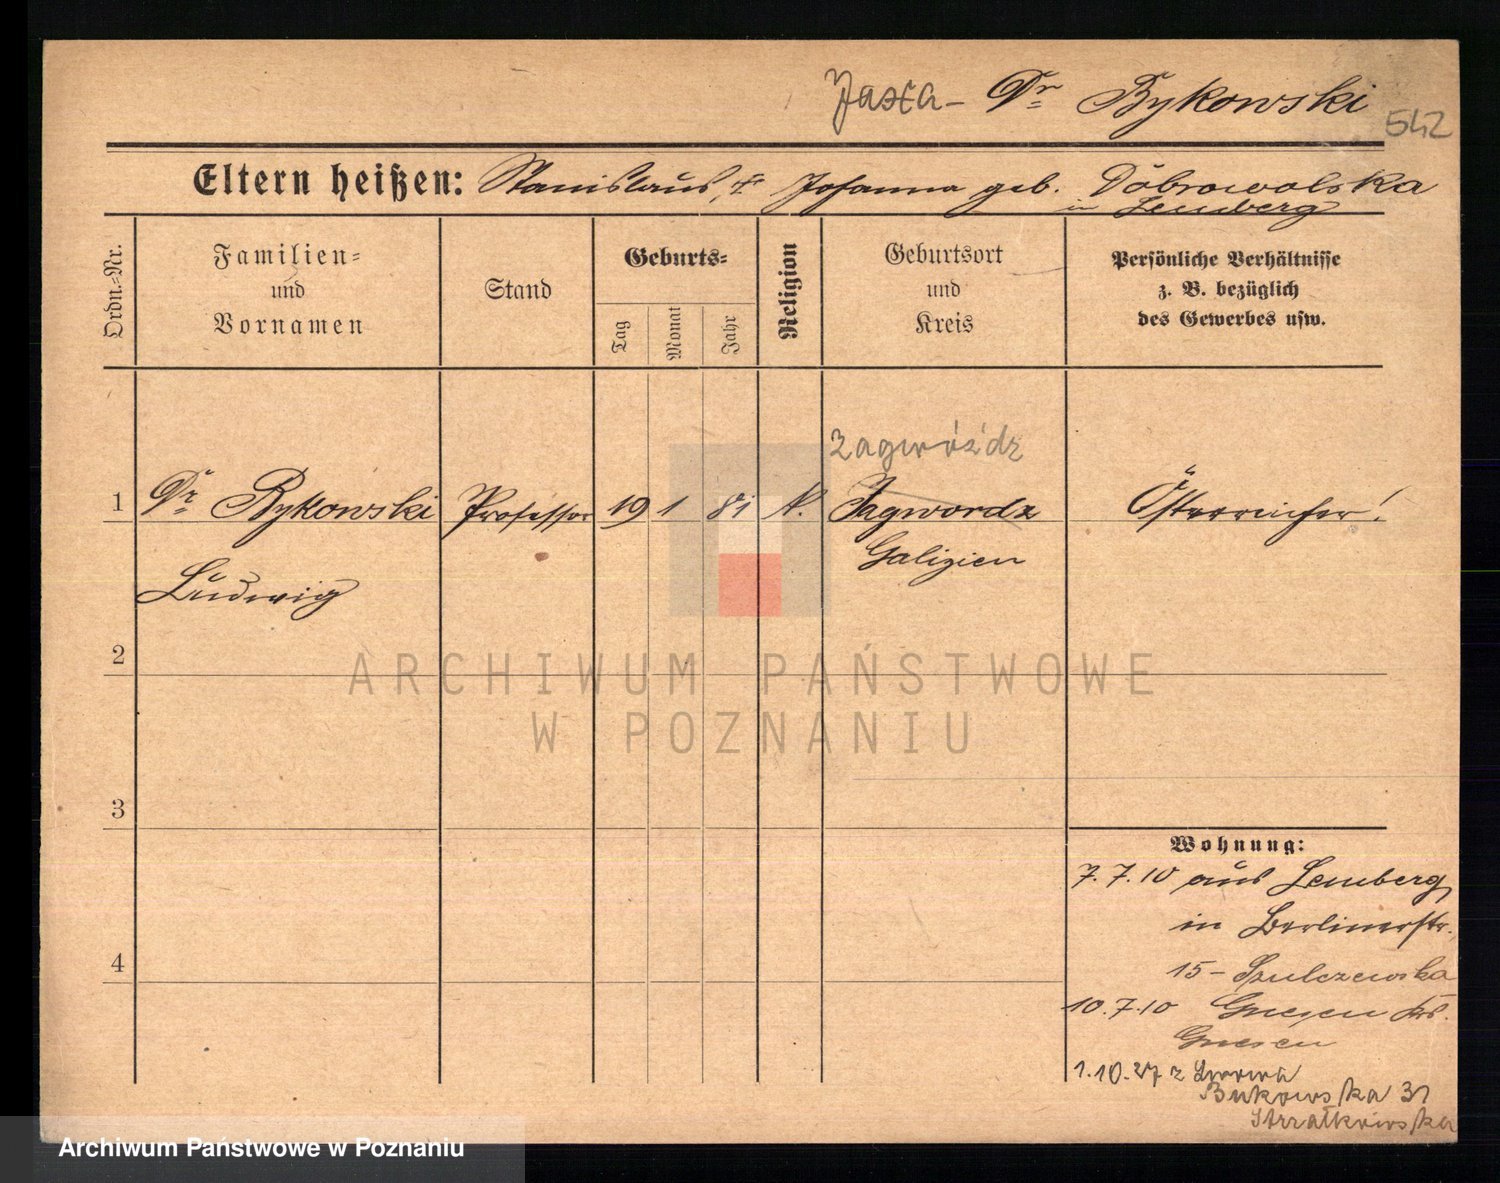 Jaxa - Dr Bykowski
542
Eltern heißen: Stanislaus, Johanna geb. Dobrowolska
in Lemberg
Ordn.-Nr.
Familien-
und
Vornamen
Stand
Geburts-
Tag
Monat
Jahr
Religion
Geburtsort
und
Kreis
Persönliche Verhältnisse
z. B. bezüglich
des Gewerbes usw.
Zagwóźdź
1 Dr Bykowski Professor 19 1 81 k. Jagwordz Österreicher!
Galizien
Ludwig
2
ARCHIWUM PAŃSTWOWE
W POZNANIU
3
Wohnung:
7.7.10 aus Lemberg
in Berlinerstr.
15 - Szulczewska
4
10.7.10 Gnesen Krs.
Gnesen
1.10.27 z Lwowa
Bukowska 31
Strzałkowska
Archiwum Państwowe w Poznaniu